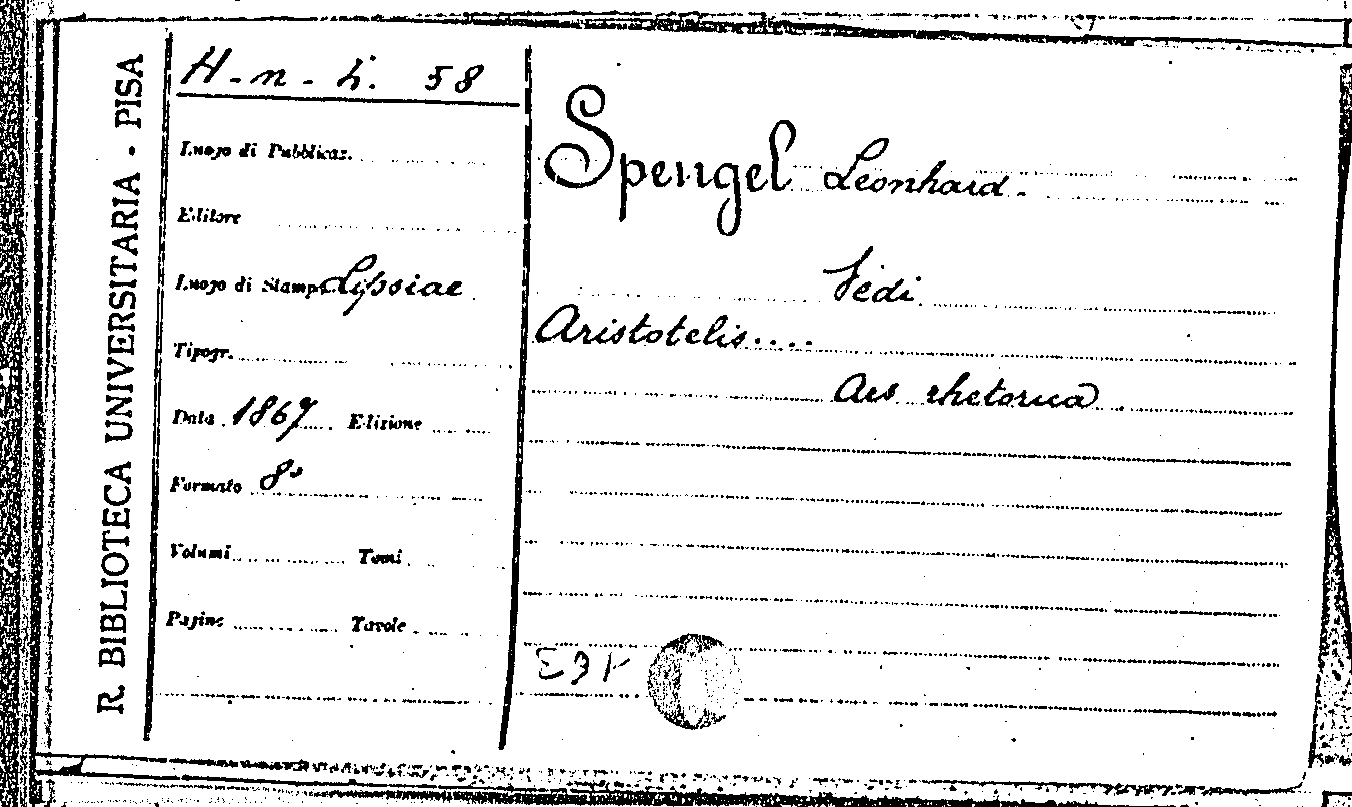 R. BIBLIOTECA UNIVERSITARIA - PISA
H - n - 4. 58
Luogo di Pubblicaz.
Editore
Luogo di Stampa Lipsiae
Tipogr.
Data 1867 Edizione
Formato 8°
Volumi Tomi
Pagine Tavole
Spengel Leonhard.
Vedi
Aristotelis....
Ars rhetorica